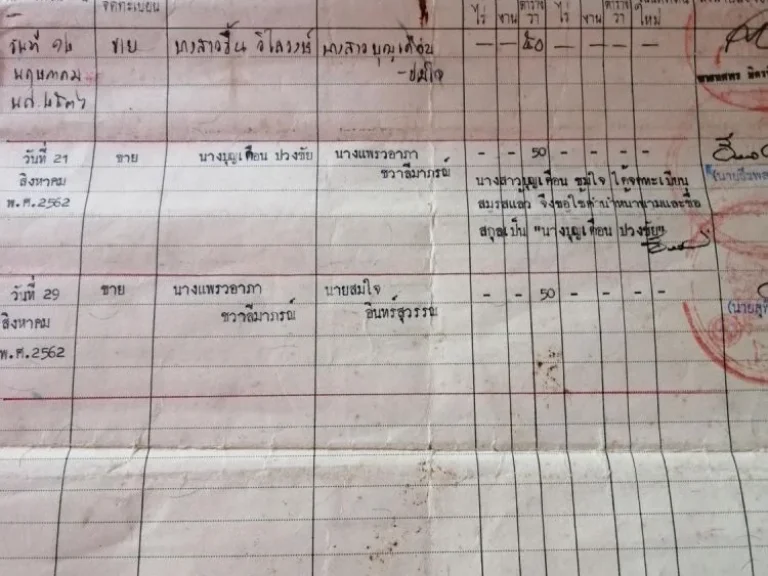 จดทะเบียน
ไร่ งาน ตาราง วา ไร่ งาน ตาราง วา ใหม่
วันที่ ๑๒ ขาย นางสาวชื้น วิไลวงษ์ นางสาวบุญเตือน — — ๕๐ — — — —
พฤษภาคม ชมใจ
พ.ศ. ๒๕๓๖
วันที่ 21 ขาย นางบุญเตือน ปวงขัย นางแพรวอาภา - - 50 - - - -
สิงหาคม ชวาลีมาภรณ์
พ.ศ.2562
นางสาวบุญเตือน ชมใจ ได้จดทะเบียน
สมรสแล้ว จึงขอใช้คำนำหน้านามและชื่อ
สกุลเป็น "นางบุญเตือน ปวงขัย"
วันที่ 29 ขาย นางแพรวอาภา นายสมใจ - - 50 - - - -
สิงหาคม ชวาลีมาภรณ์ อินทร์สุวรรณ
พ.ศ.2562